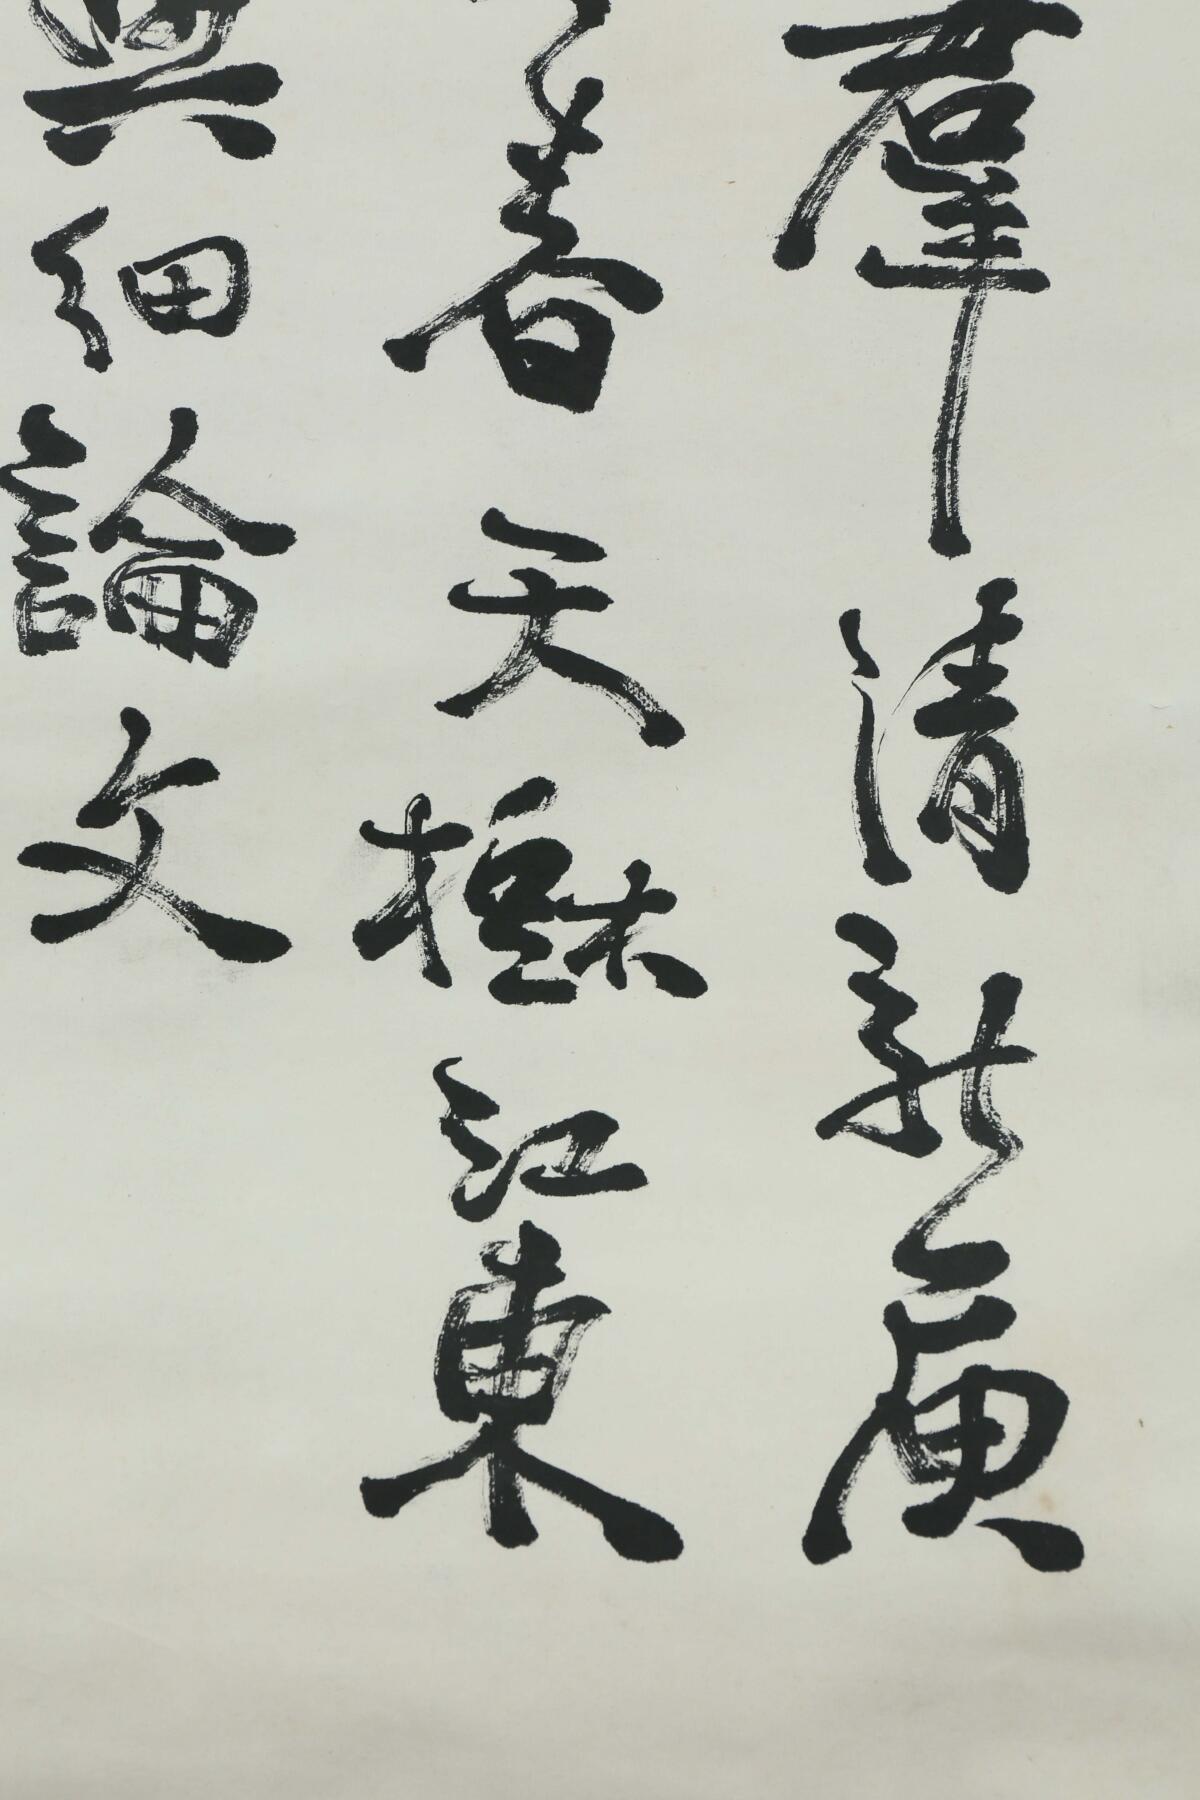 羣清新庾
春天樹江東
與細論文